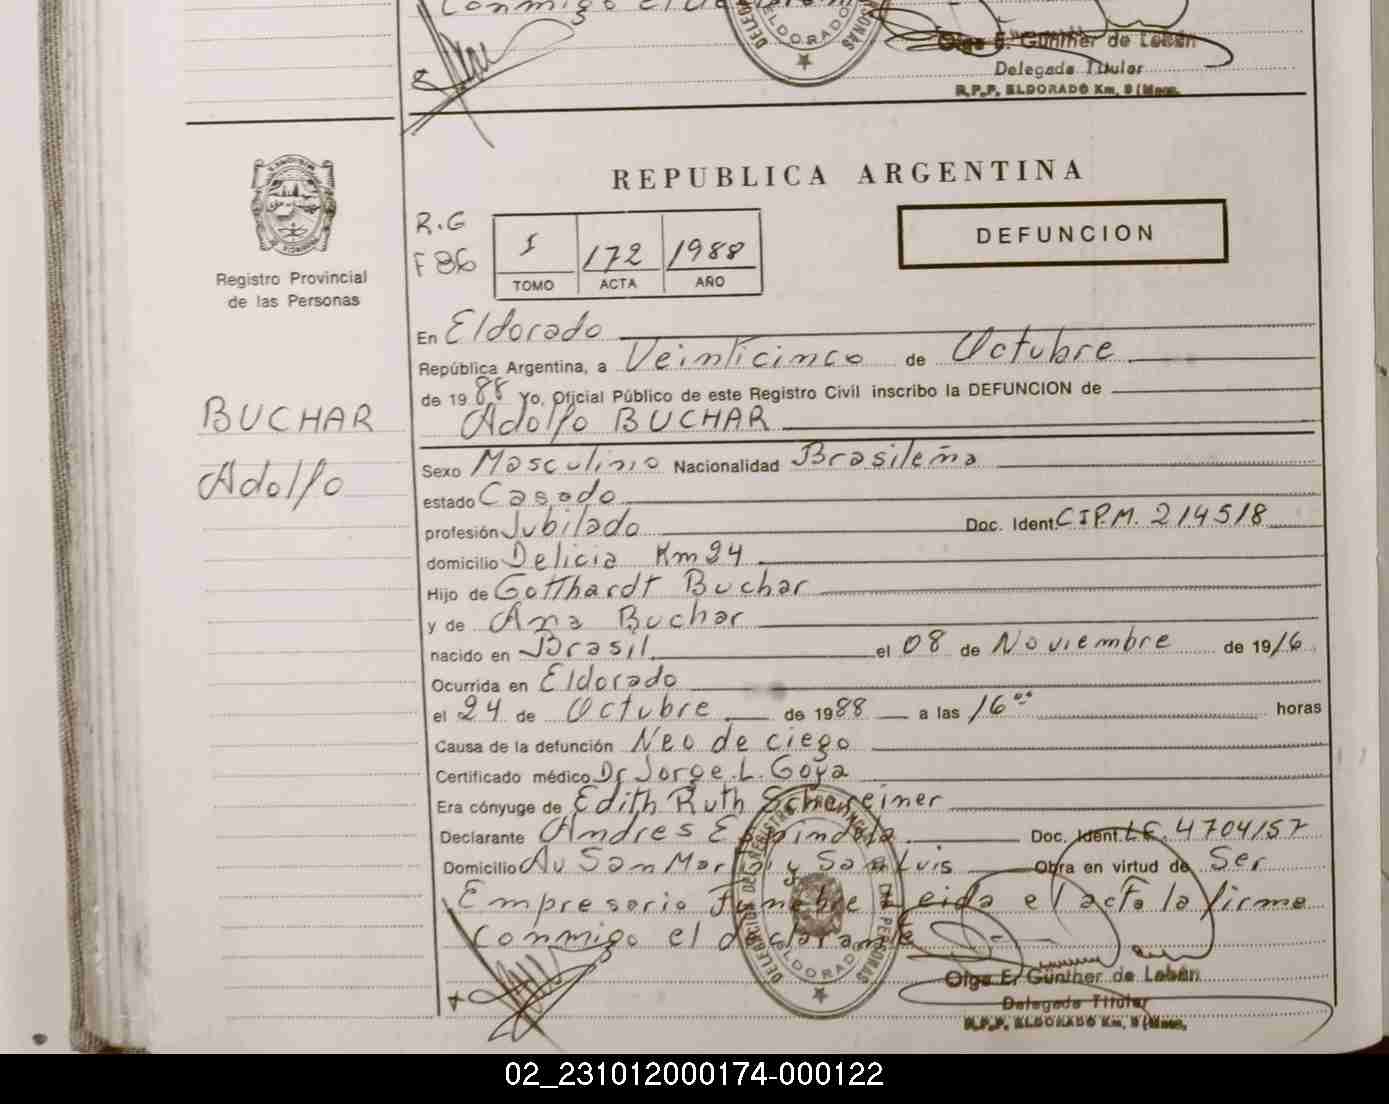 Conmigo el
DELEG ELDORADO PERSONAS
Olga E. Günther de Labán
Delegada Titular
R.P.P. ELDORADO Km. 9 (Mnes.
REPUBLICA ARGENTINA
R.G
F 86
I 172 1988
TOMO ACTA AÑO
DEFUNCION
Registro Provincial
de las Personas
En Eldorado
República Argentina, a Veinticinco de Octubre
de 1988 Yo, Oficial Público de este Registro Civil inscribo la DEFUNCION de
BUCHAR
Adolfo BUCHAR
Adolfo
Sexo Masculino Nacionalidad Brasileña
estado Casado
profesión Jubilado Doc. Ident. C.I.P.M. 214518
domicilio Delicia Km 24
Hijo de Gotthardt Buchar
y de Ana Buchar
nacido en Brasil el 08 de Noviembre de 1916
Ocurrida en Eldorado
el 24 de Octubre de 1988 a las 16°° horas
Causa de la defunción Neo de ciego
Certificado médico Dr Jorge L. Goya
Era cónyuge de Edith Ruth Schereiner
Declarante Andres Espindola Doc. Ident. L.E. 4704157
Domicilio Av San Martin y San Luis Obra en virtud de Ser
Empresario Funebre Leida el acta la firma
Conmigo el declarante
DELEGACION DEL REGISTRO PROVINCIAL DE PERSONAS ELDORADO
Olga E. Günther de Labán
Delegada Titular
R.P.P. ELDORADO Km. 9 (Mnes.
02_231012000174-000122